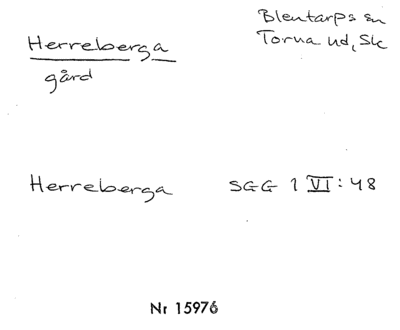 Herreberga
gård
Blentarps sn
Torna hd, Sk
Herreberga SGG 1 VI:48
Nr 15976